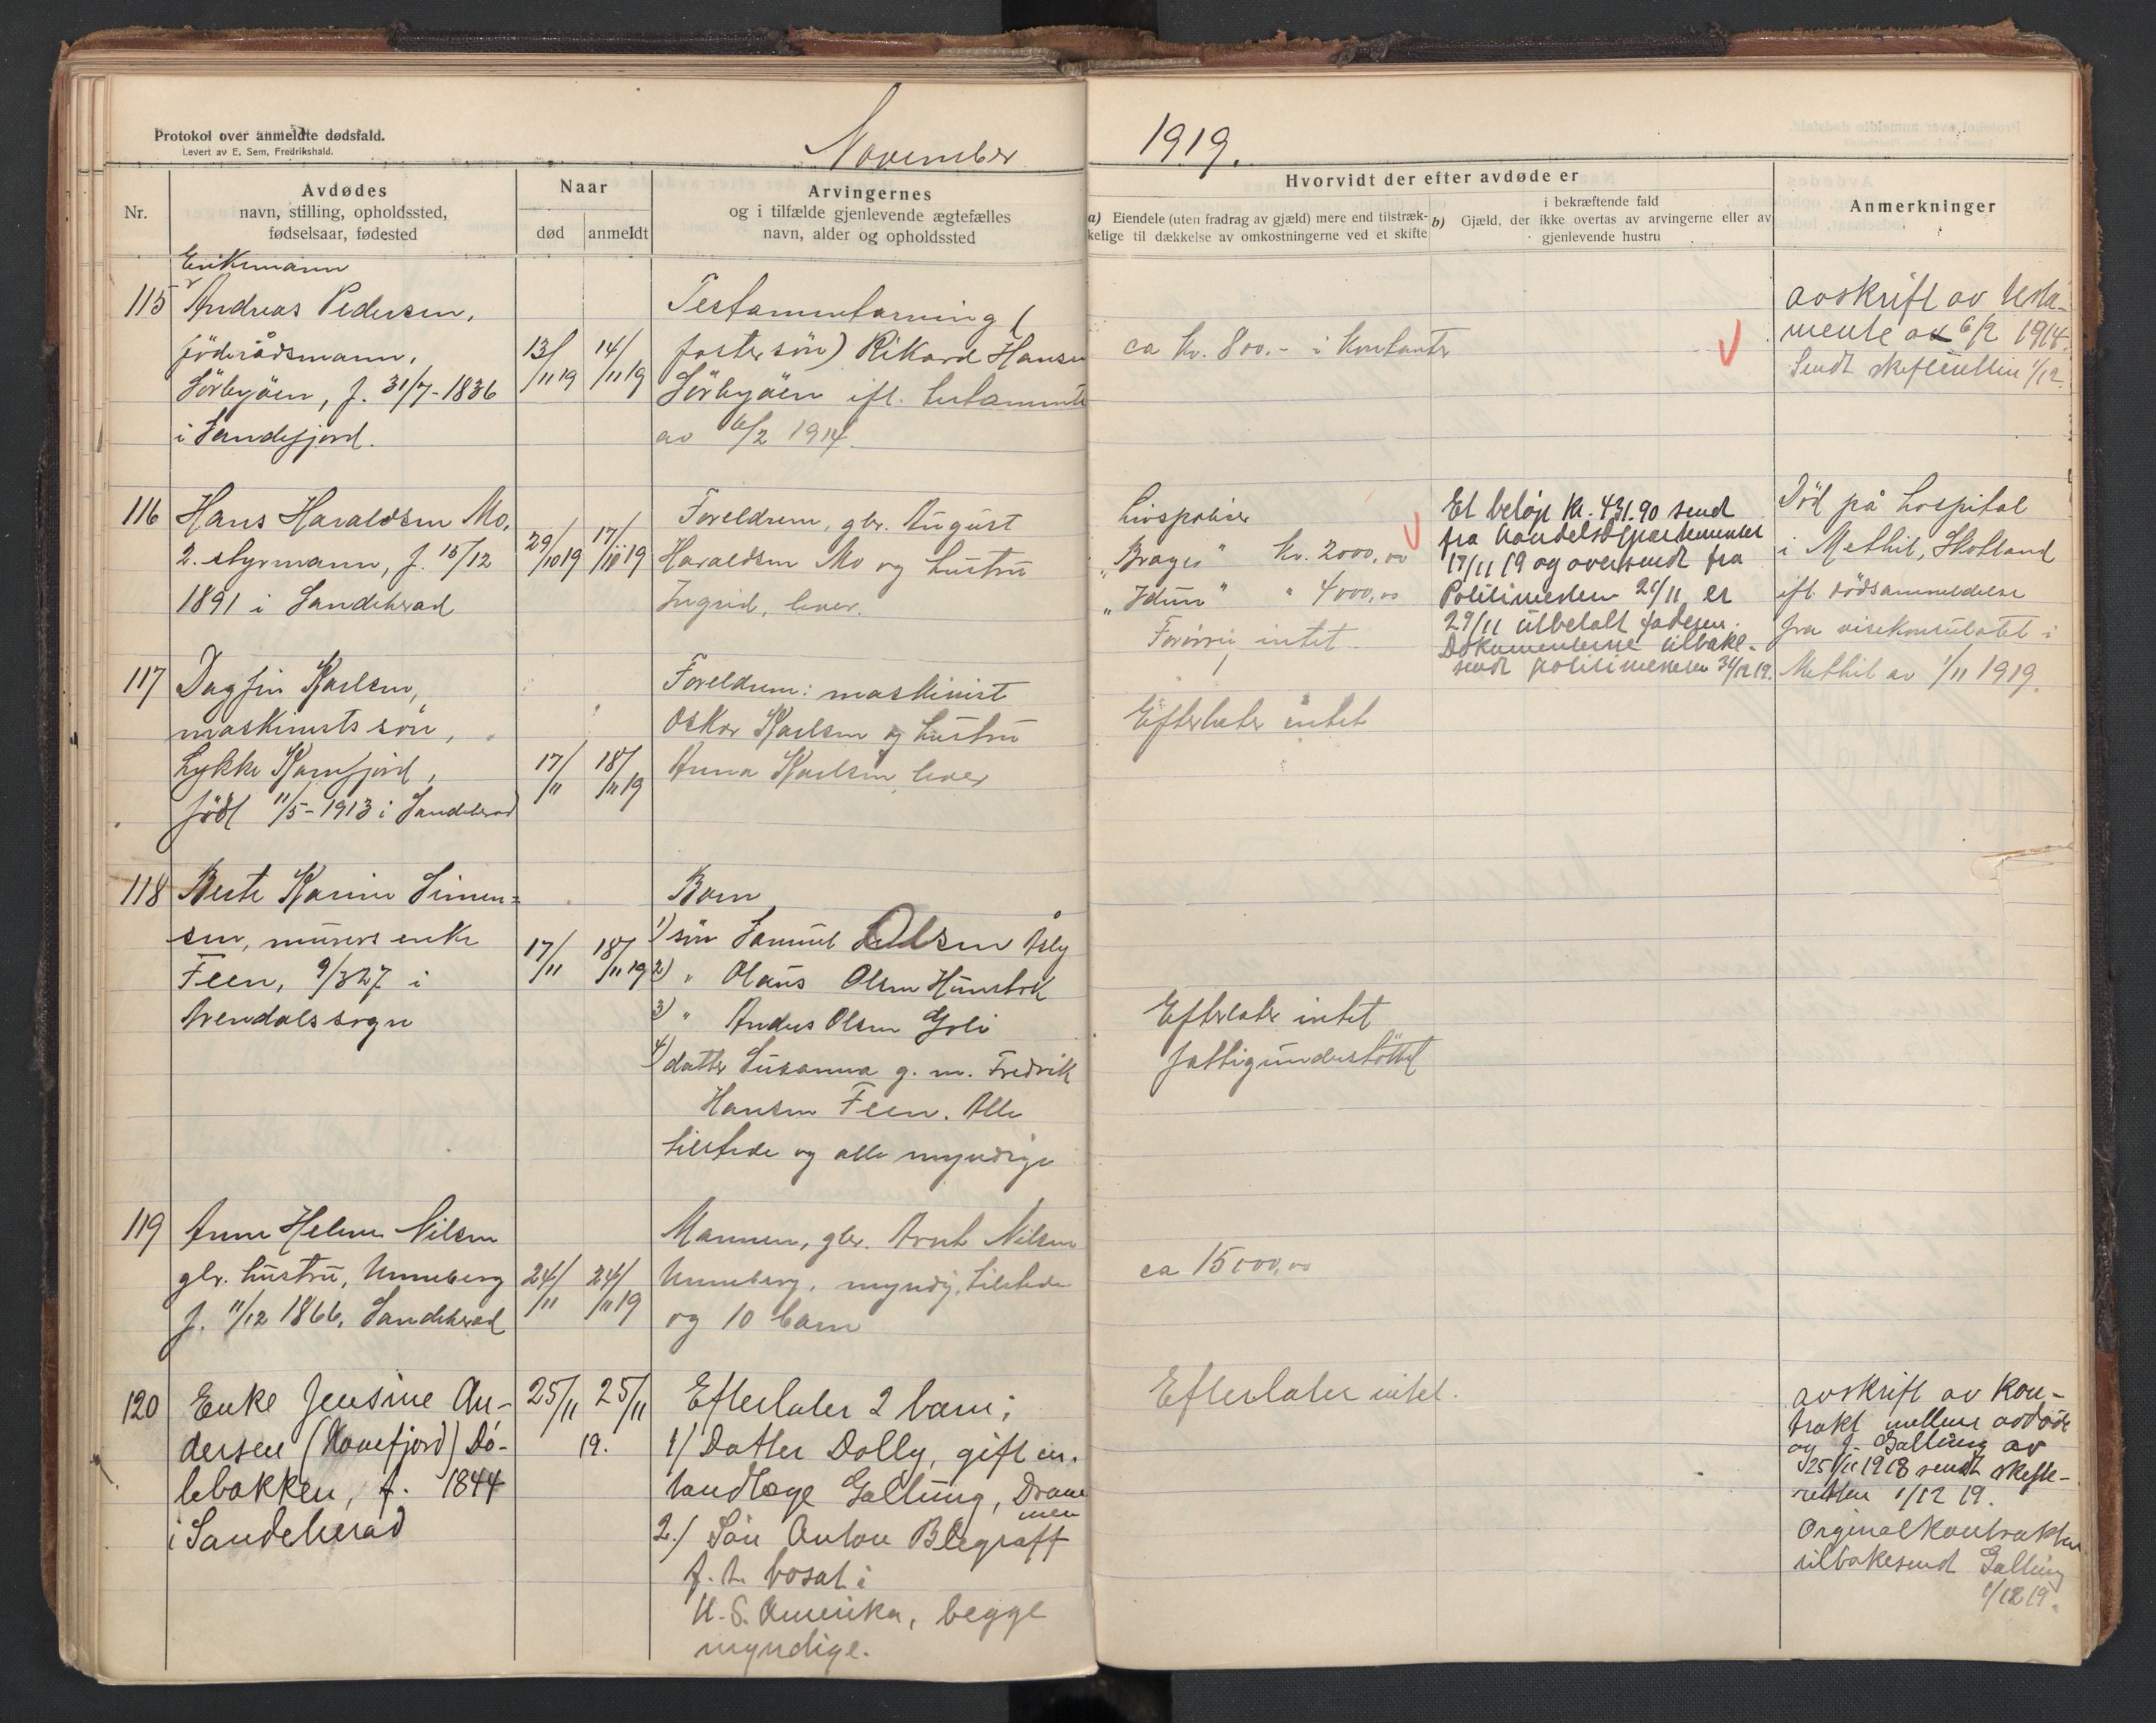 Protokol over anmeldte dødsfald.
Levert av E. Sem, Fredrikshald.
November
1919.
Nr.
Avdødes
navn, stilling, opholdssted,
fødselsaar, fødested
Naar
død
anmeldt
Arvingernes
og i tilfælde gjenlevende ægtefælles
navn, alder og opholdssted
Hvorvidt der efter avdøde er
a) Eiendele (uten fradrag av gjæld) mere end tilstræk-
kelige til dækkelse av omkostningerne ved et skifte
i bekræftende fald
b) Gjæld, der ikke overtas av arvingerne eller av
gjenlevende hustru
Anmerkninger
Enkemann
115 Andreas Pedersen,
föderådsmann,
Sörbyöen, f. 31/7-1836
i Sandefjord.
13/11 19
14/11 19
Testamentarving (
fostersön) Rikard Hansen
Sörbyöen ifl. testamente
av 6/2 1914.
ca kr. 800.- i kontanter
avskrift av testa-
mente av 6/2 1914.
Sendt skifteretten 1/12
116 Hans Haraldsen Mo,
2. styrmann, f. 15/12
1891 i Sandeherad
29/10 19
17/11 19
Foreldrene, gbr. August
Haraldsen Mo og hustru
Ingrid, lever.
Livspoliser
"Brages" kr. 2000,00
"Idun" " 4000,00
Forövrig intet
Et beløp kr. 431.90 send
fra Handelsdepartementet
17/11 19 og oversendt fra
Politimesteren 26/11 er
29/11 utbetalt faderen.
Dokumenterne tilbake-
sendt politimesteren 31/12 19.
Död på hospital
i Methil, Skotland
ifl. dödsanmeldelse
fra visekonsulatet i
Methil av 1/11 1919.
117 Dagfin Karlsen,
maskinists sön,
Lykke Kamfjord,
født 11/5-1913 i Sandeherad
17/11
18/11 19
Foreldrene: maskinist
Oskar Karlsen og hustru
Anna Karlsen, lever
Efterlater intet
118 Berte Karine Simen=
sen, murers enke
Feen, 9/3 27 i
Arendals sogn
17/11
18/11 19
Barn
1) sön Samuel Olsen Åsly
2) " Olaus Olsen Hunstok
3) " Anders Olsen Goli
4) datter Susanna g. m. Fredrik
Hansen Feen. Alle
tilstede og alle myndige
Efterlater intet
fattigunderstöttet
119 Anne Helene Nilsen
gbr. hustru, Unneberg
f. 11/12 1866, Sandeherad
24/11
24/11 19
Mannen, gbr. Arnt Nilsen
Unneberg, myndig, tilstede
og 10 barn
ca 15000,00
120 Enke Jensine An-
dersen (Kamfjord) Dö-
lebakken, f. 1844
i Sandeherad
25/11
25/11
19.
Efterlater 2 barn;
1/ Datter Dolly, gift m.
tandlæge Galtung, Dram
men
2./ Sön Anton Blegraff
f. t. bosat i
U.S. Amerika, begge
myndige.
Efterlater intet.
avskrift av kon-
trakt mellem avdöde
og J. Galtung av
25/11 1918 sendt skifte-
retten 1/12 19.
Orginalkontrakten
tilbakesend Galtung
1/12 19.